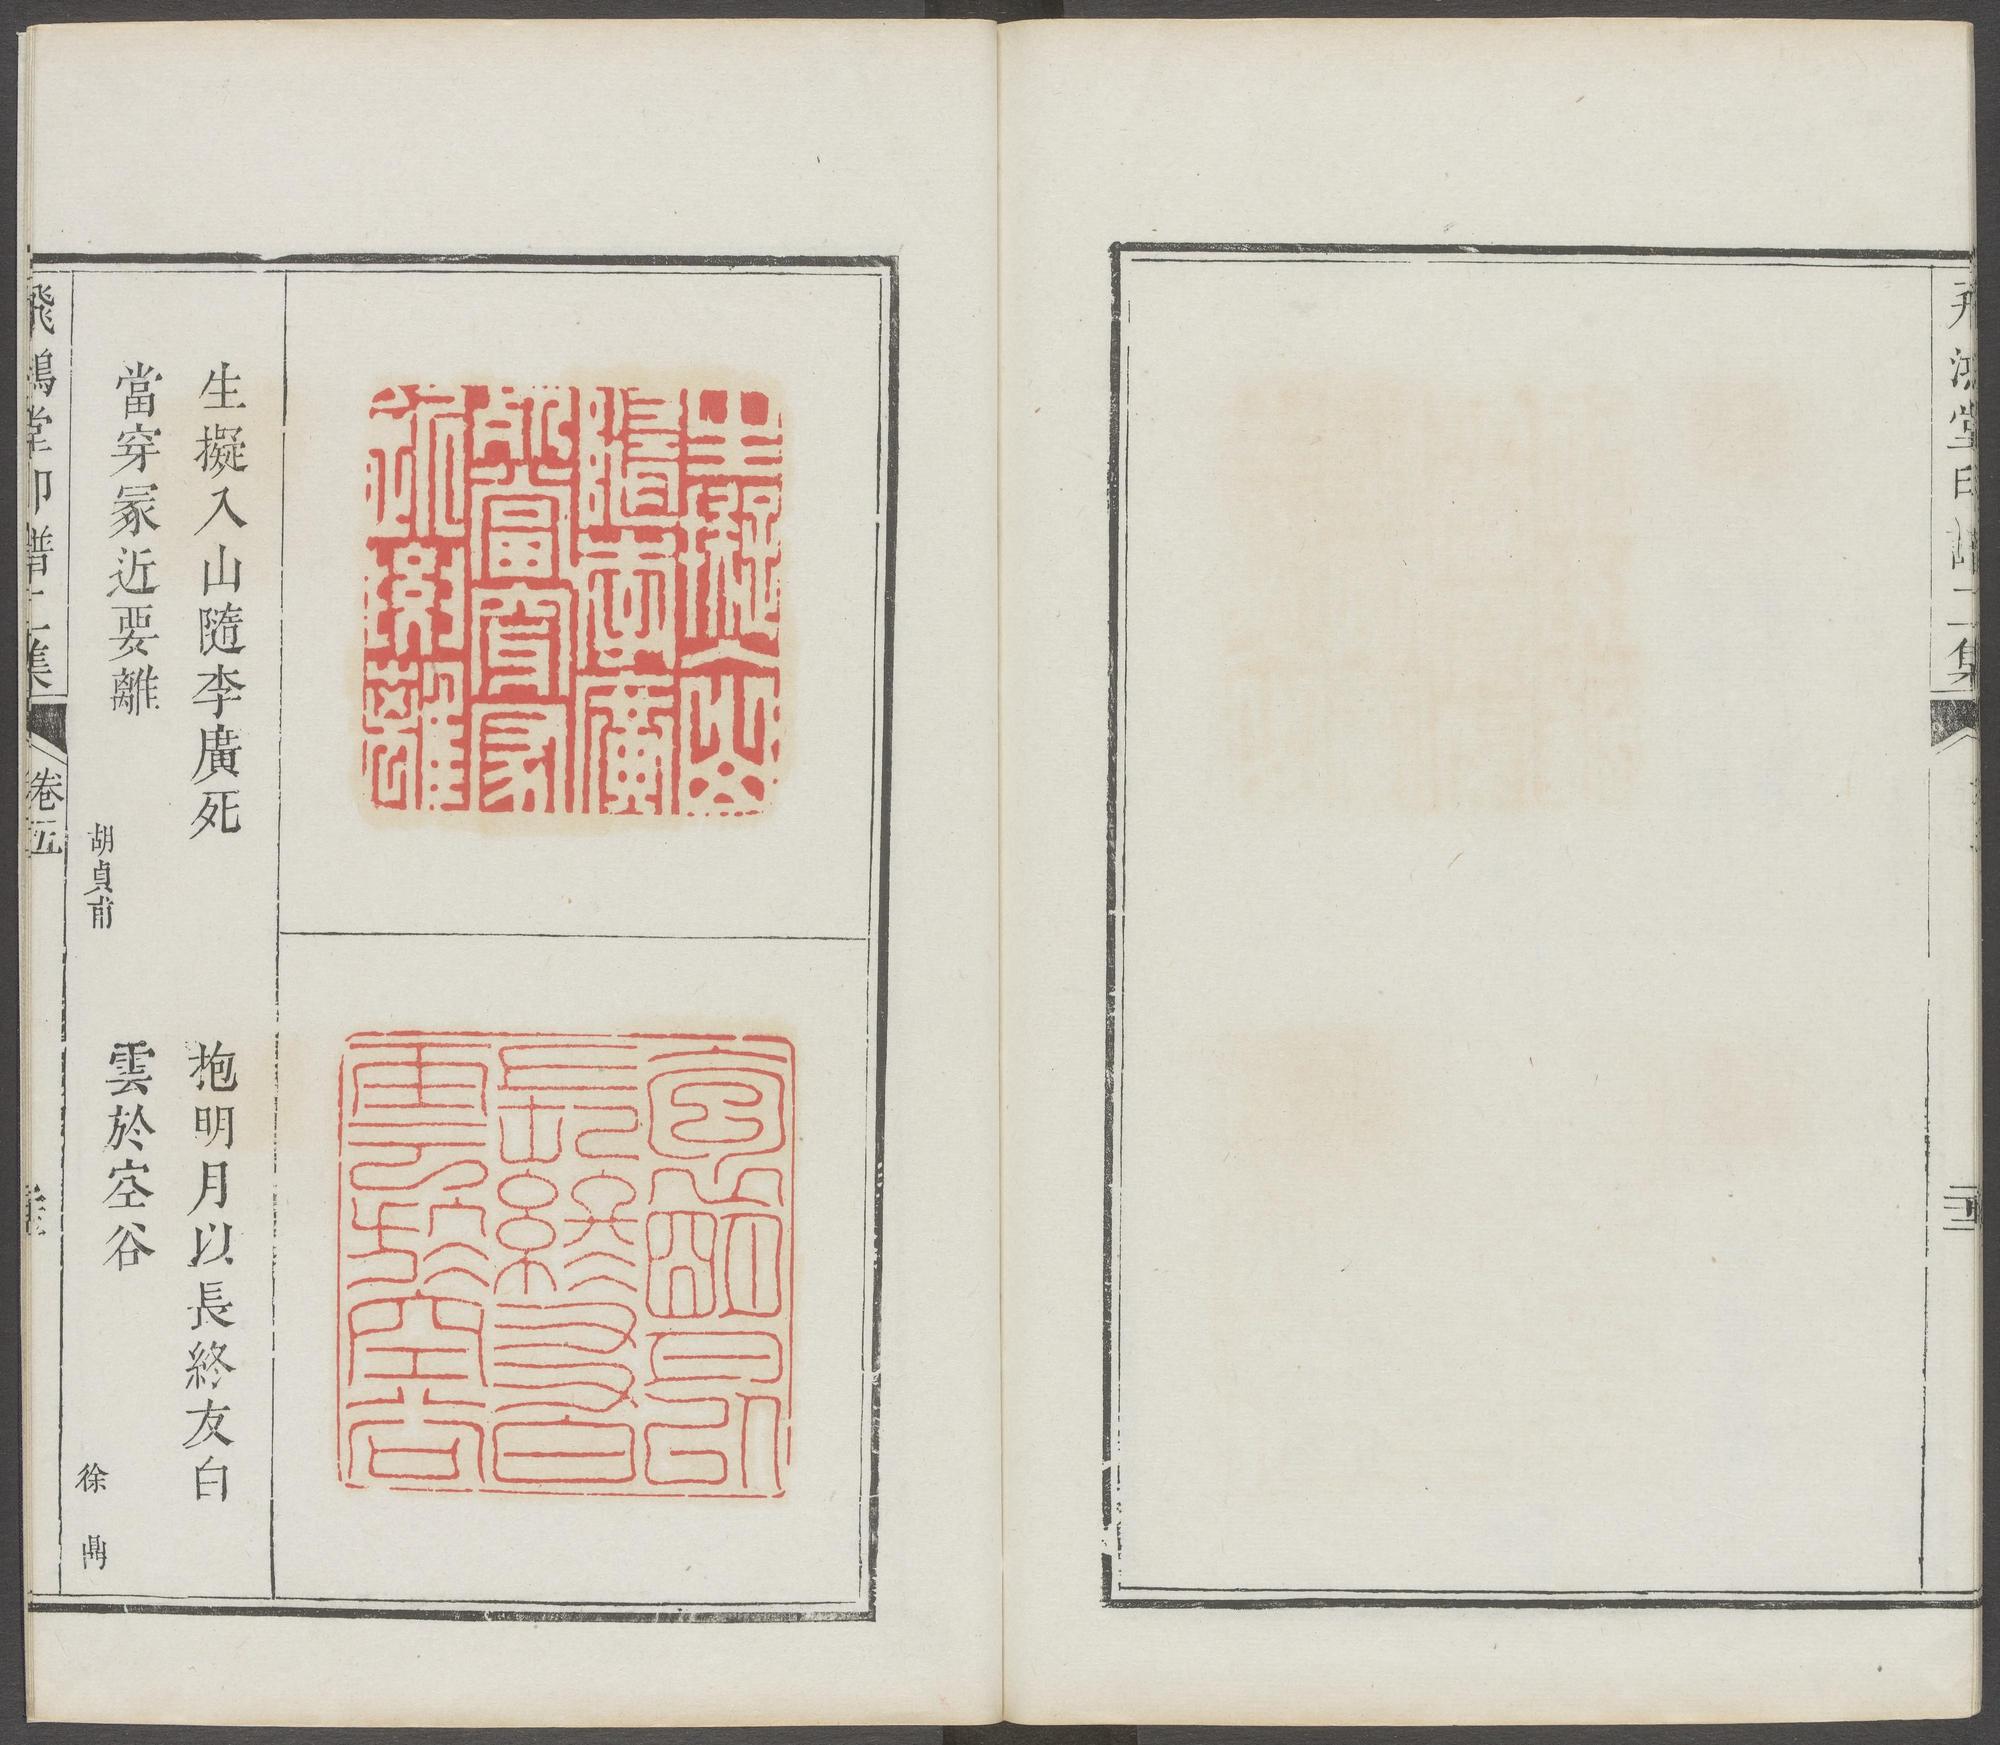 飛鴻堂印譜二集
生擬入山隨李廣死
當穿冢近要離
胡貞甫
抱明月以長終友白
雲於空谷
徐鼎
飛鴻堂印譜二集
卷五